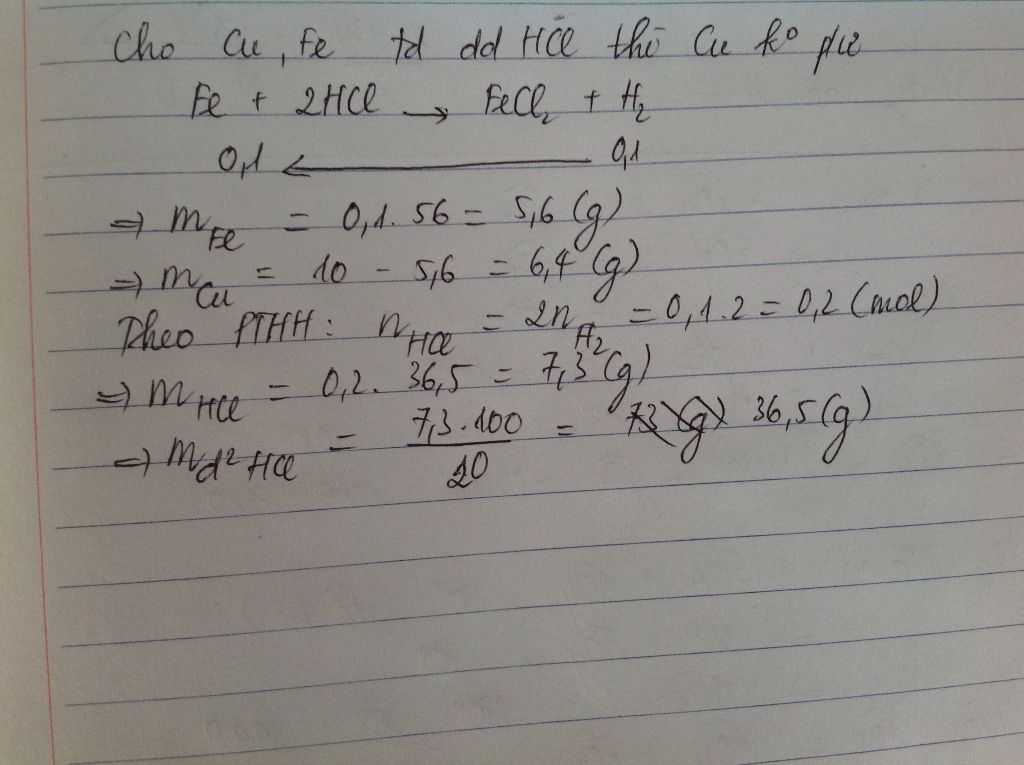 Cho Cu, Fe td dd HCl thì Cu ko pứ
Fe + 2HCl → FeCl₂ + H₂
0,1 ← 0,1
⇒ m_Fe = 0,1. 56 = 5,6 (g)
⇒ m_Cu = 10 - 5,6 = 6,4 (g)
Theo PTHH: n_HCl = 2n_H₂ = 0,1.2 = 0,2 (mol)
⇒ m_HCl = 0,2. 36,5 = 7,3 (g)
⇒ m_d² HCl = 7,3.100 / 20 = 73 (g) 36,5 (g)